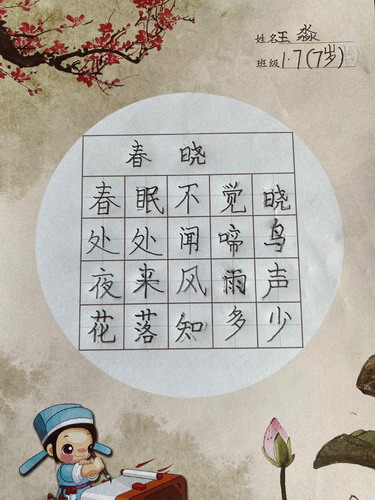 姓名王淼
班级1.7(7岁)
春晓
春眠不觉晓
处处闻啼鸟
夜来风雨声
花落知多少